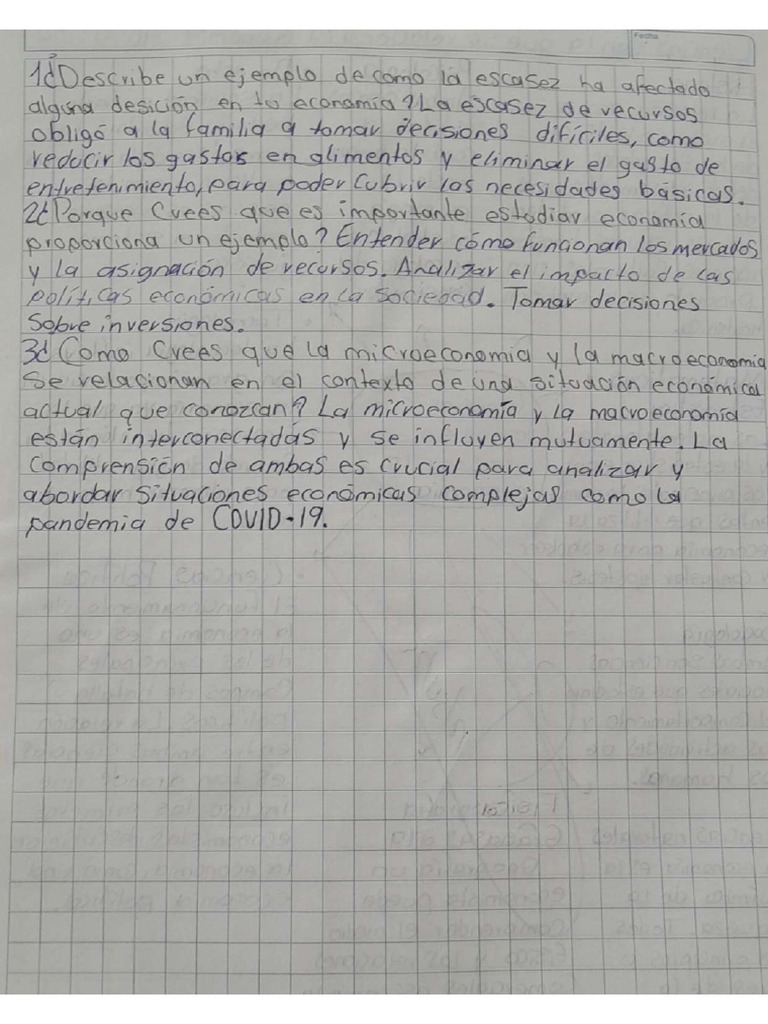 Fecha
1¿Describe un ejemplo de como la escasez ha afectado
alguna desición en tu economía? La escasez de recursos
obligó a la familia a tomar decisiones difíciles, como
reducir los gastos en alimentos y eliminar el gasto de
entretenimiento, para poder cubrir las necesidades básicas.
2¿Porque Crees que es importante estudiar economía
proporciona un ejemplo? Entender cómo funcionan los mercados
y la asignación de recursos. Analizar el impacto de las
políticas económicas en la sociedad. Tomar decisiones
sobre inversiones.
3¿Como Crees que la microeconomia y la macroeconomia
se relacionan en el contexto de una situación económica
actual que conozcan? La microeconomía y la macroeconomía
están interconectadas y se influyen mutuamente. La
comprensión de ambas es crucial para analizar y
abordar situaciones económicas complejas como la
pandemia de COVID-19.